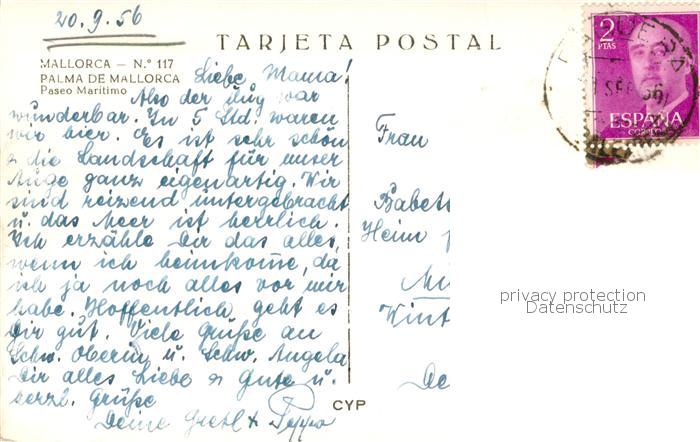 20.9.56
TARJETA POSTAL
MALLORCA – N.º 117
PALMA DE MALLORCA
Paseo Marítimo
Liebe Mama!
Also der Flug war
wunderbar. In 5 Std. waren
wir hier. Es ist sehr schön
& die Landschaft für unser
Auge ganz eigenartig. Wir
sind reizend untergebracht
u. das Meer ist herrlich.
Ich erzähle Dir das alles,
wenn ich heimkome, da
ich ja noch alles vor mir
habe. Hoffentlich geht es
Dir gut. Viele Grüße an
Schw. Oberin u. Schw. Angela
Dir alles Liebe & Gute u.
herzl. Grüße
Deine Gretl + Peppo
CYP
Frau
Babet
Heim
Mü
Wint
De
2
PTAS
ESPAÑA
CORREOS
SEP 56
privacy protection
Datenschutz